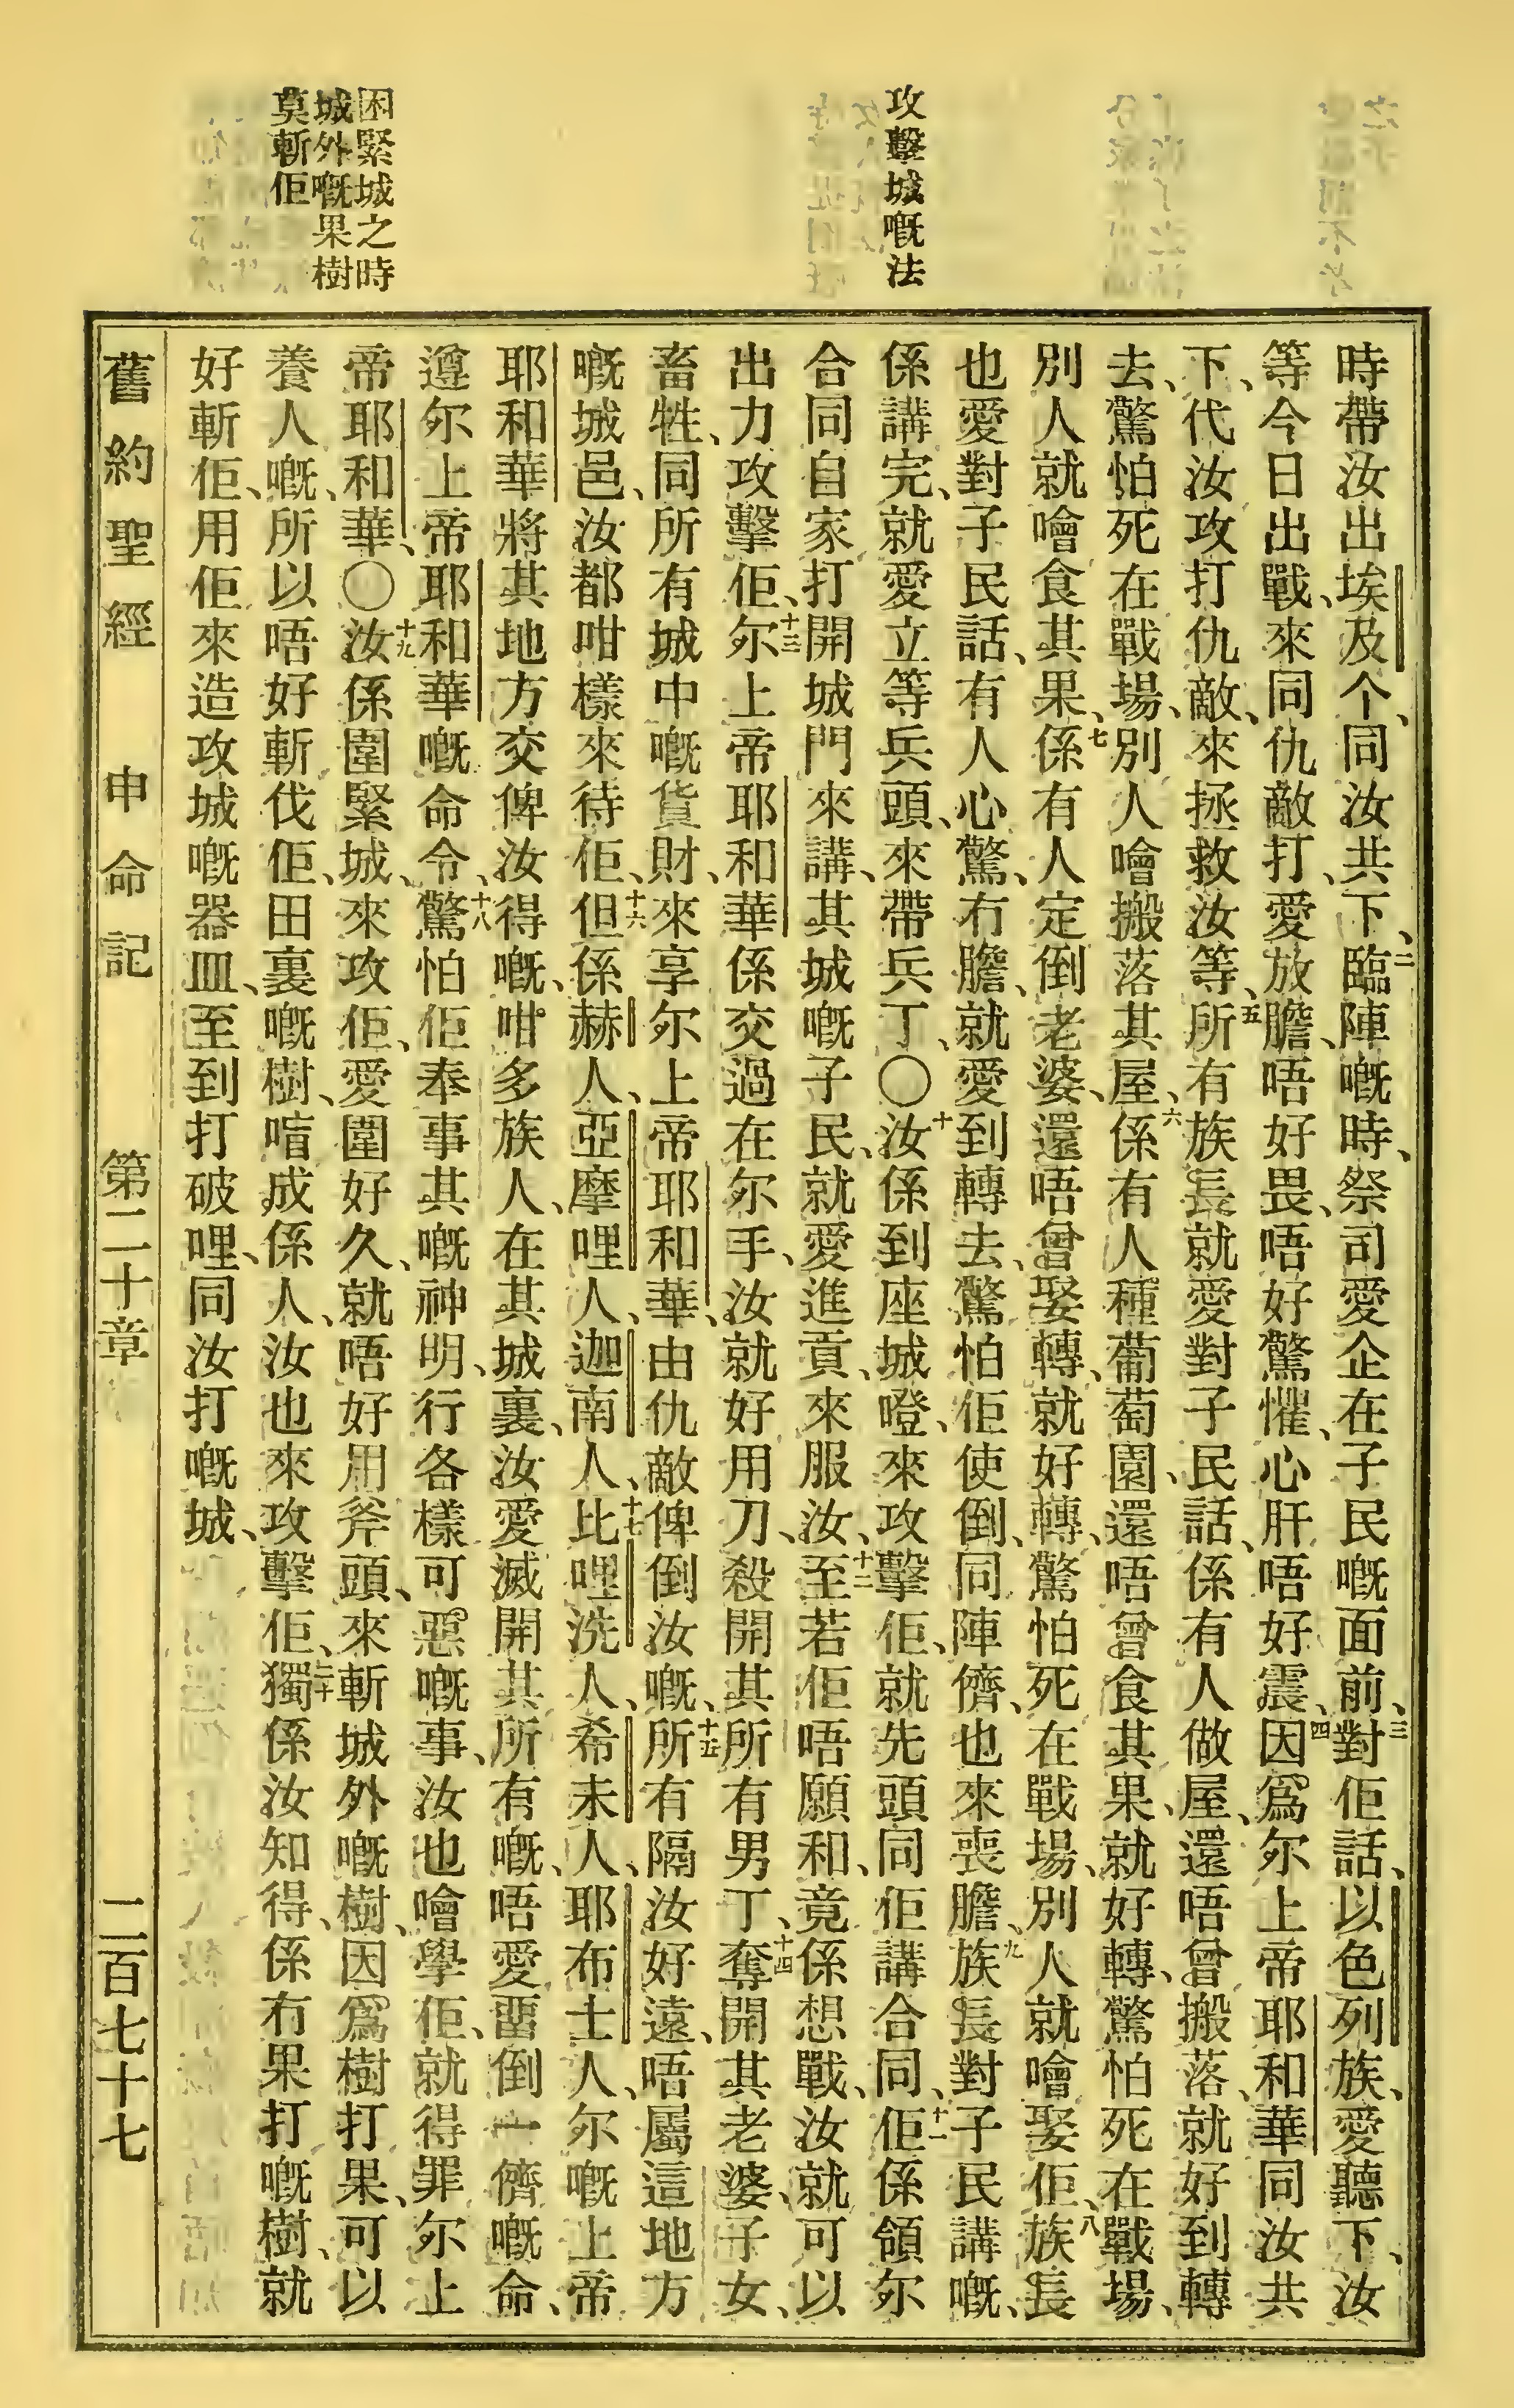 攻擊城嘅法
困緊城之時
城外嘅果樹
莫斬佢
時帶汝出埃及个、同汝共下、二臨陣嘅時、祭司愛企在子民嘅面前、三對佢話、以色列族、愛聽下、汝
等今日出戰、來同仇敵打、愛放膽、唔好畏、唔好驚懼、心肝唔好震、四因爲尔上帝耶和華同汝共
下、代汝攻打仇敵、來拯救汝等、五所有族長就愛對子民話、係有人做屋、還唔曾搬落、就好到轉
去、驚怕死在戰場、別人噲搬落其屋、六係有人種葡萄園、還唔曾食其果、就好轉、驚怕死在戰場、
別人就噲食其果、七係有人定倒老婆、還唔曾娶轉、就好轉、驚怕死在戰場、別人就噲娶佢、八族長
也愛對子民話、有人心驚、冇膽、就愛到轉去、驚怕佢使倒、同陣儕、也來喪膽、九族長對子民講嘅、
係講完、就愛立等兵頭、來帶兵丁、〇十汝係到座城嶝、來攻擊佢、就先頭同佢講合同、十一佢係領尔
合同自家打開城門來講、其城嘅子民、就愛進貢、來服汝、十二至若佢唔願和、竟係想戰、汝就可以
出力攻擊佢、十三尔上帝耶和華係交過在尔手、汝就好用刀、殺開其所有男丁、十四奪開其老婆、子女、
畜牲、同所有城中嘅貨財、來享尔上帝耶和華、由仇敵俾倒汝嘅、十五所有隔汝好遠、唔屬這地方
嘅城邑、汝都咁樣來待佢、十六但係赫人、亞摩哩人、迦南人、十七比哩洗人、希未人、耶布士人、尔嘅上帝
耶和華將其地方交俾汝得嘅、咁多族人、在其城裏、汝愛滅開其所有嘅、唔愛畱倒一儕嘅命、
遵尔上帝耶和華嘅命令、十八驚怕佢奉事其嘅神明、行各樣可惡嘅事、汝也噲學佢、就得罪尔上
帝耶和華、〇十九汝係圍緊城、來攻佢、愛圍好久、就唔好用斧頭、來斬城外嘅樹、因爲樹打果、可以
養人嘅、所以唔好斬伐佢、田裏嘅樹、唁成係人、汝也來攻擊佢、二十獨係汝知得、係冇果打嘅樹、就
好斬佢、用佢來造攻城嘅器皿、至到打破哩、同汝打嘅城、
舊約聖經　申命記　第二十章　二百七十七